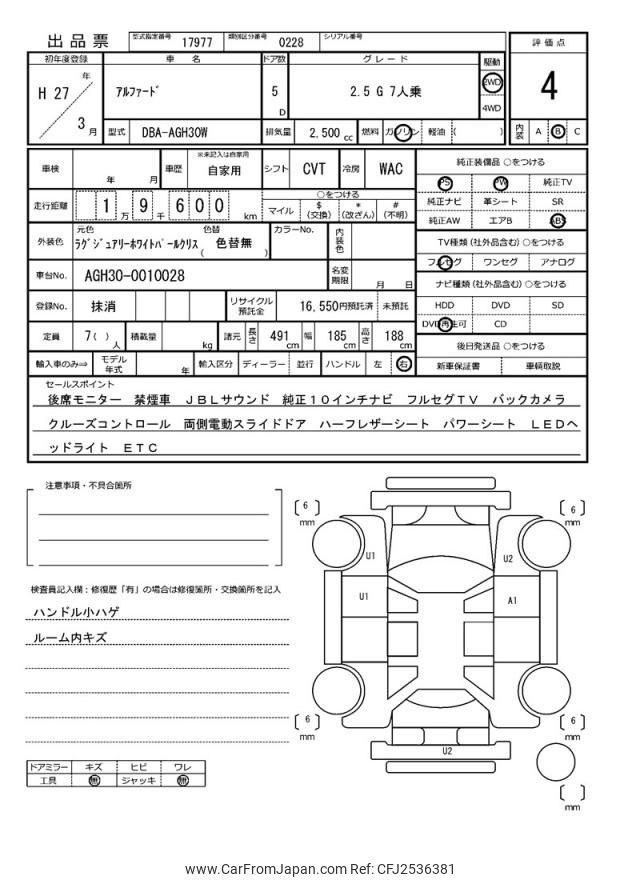 出品票
型式指定番号 17977 類別区分番号 0228 シリアル番号
初年度登録 車 名 ドア数 グレード 駆動 評価点
H 27 年 3 月
アルファード 5 D 2.5 G 7人乗 2WD 4WD
4
型式 DBA-AGH30W 排気量 2,500 cc 燃料 ガソリン 軽油 ( ) 内装 A B C
車検 年 月 車歴 ※未記入は自家用 自家用 シフト CVT 冷房 WAC
走行距離 1 万 9 千 6 0 0 km
○をつける
マイル $(交換) *(改ざん) #(不明)
外装色 元色 ラグジュアリーホワイトパールクリス 色替 ( 色替無 ) カラーNo. 内装色
車台No. AGH30-0010028 名変期限 月 日
登録No. 抹消 リサイクル預託金 16,550円預託済 未預託
定員 7( )人 積載量 kg 諸元 長さ 491 cm 幅 185 cm 高さ 188 cm
輸入車のみ⇒ モデル年式 年 輸入区分 ディーラー 並行 ハンドル 左 右
純正装備品 ○をつける
PS PW 純正TV
純正ナビ 革シート SR
純正AW エアB ABS
TV種類 (社外品含む) ○をつける
フルセグ ワンセグ アナログ
ナビ種類 (社外品含む) ○をつける
HDD DVD SD
DVD再生可 CD
後日発送品 ○をつける
新車保証書 車輌取説
セールスポイント
後席モニター 禁煙車 JBLサウンド 純正10インチナビ フルセグTV バックカメラ
クルーズコントロール 両側電動スライドドア ハーフレザーシート パワーシート LEDヘ
ッドライト ETC
注意事項・不具合箇所
検査員記入欄：修復歴「有」の場合は修復箇所・交換箇所を記入
ハンドル小ハゲ
ルーム内キズ
ドアミラー キズ ヒビ ワレ
工具 無 ジャッキ 無
6 mm
6 mm
U1
U2
U1
A1
6 mm
6 mm
U2
mm
www.CarFromJapan.com Ref: CFJ2536381